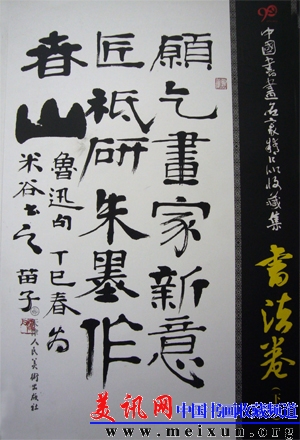 願乞畫家新意
匠祗研朱墨作
春山
魯迅句丁巳春為
米谷书之 苗子
人民美術出版社
中國書畫名家精品收藏集
书法卷
(下
美讯网
中国书画收藏频道
www.meixun.org